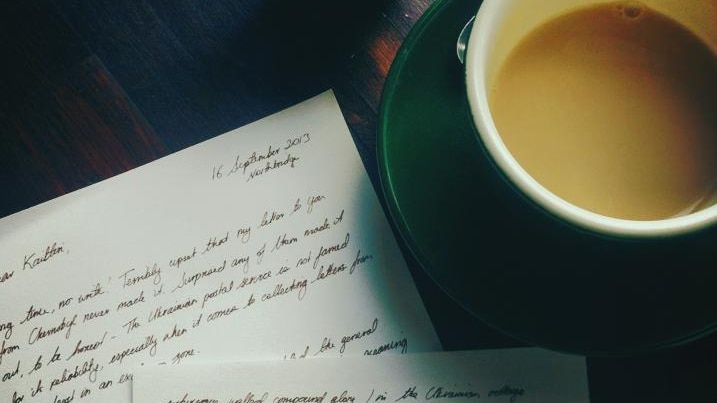 16 September 2013
Northbridge
ear Kaitlin,
ng time, no write! Terribly upset that my letter to you
from Chernobyl never made it. Surprised any of them made it
out, to be honest - The Ukrainian postal service is not famed
for its reliability, especially when it comes to collecting letters from
in an zone.
the general
meaning
compound alone in the Ukrainian